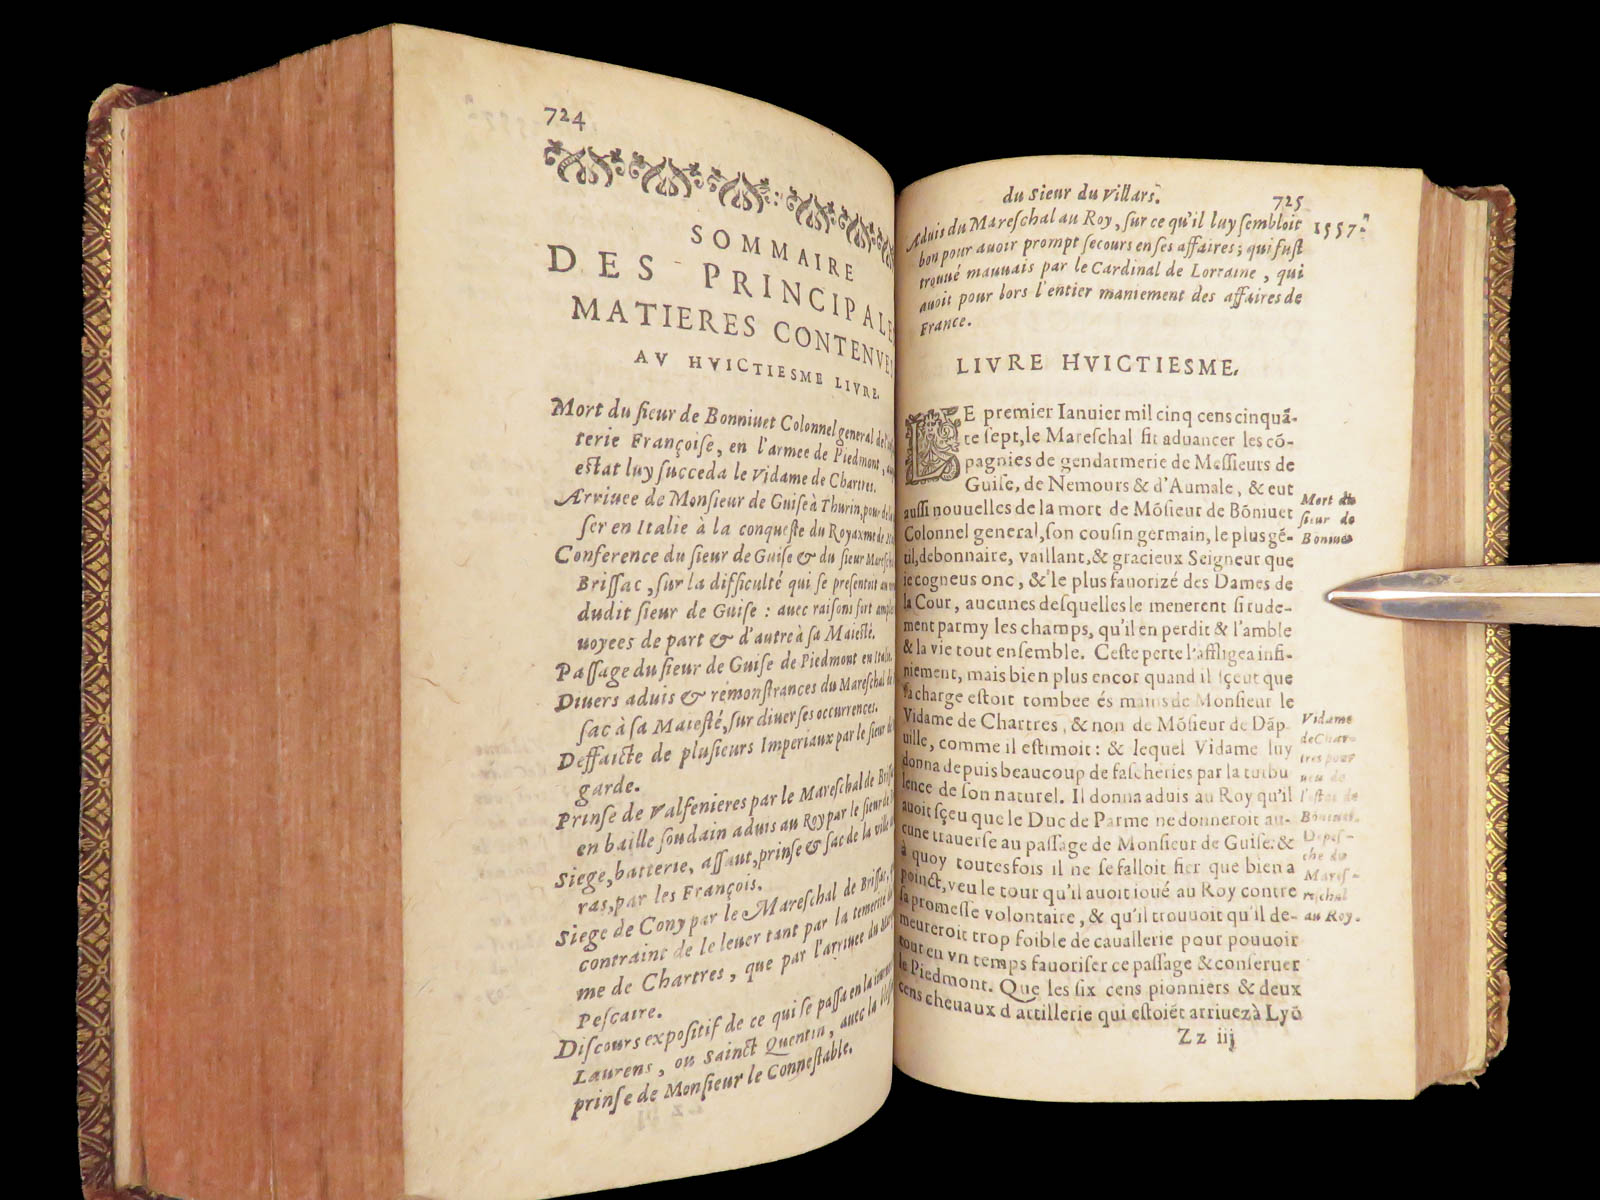 724
SOMMAIRE
DES PRINCIPALES
MATIERES CONTENVES
AV HVICTIESME LIVRE.
Mort du ſieur de Bonniuet Colonnel general de
terie Françoiſe, en l'armee de Piedmont,
eſtat luy ſucceda le Vidame de Chartres.
Arriuee de Monſieur de Guiſe à Thurin, pour de
ſer en Italie à la conqueſte du Royaume de
Conference du ſieur de Guiſe & du ſieur Mareſchal
Briſſac, ſur la difficulté qui ſe preſentoit
dudit ſieur de Guiſe : auec raiſons fort
uoyees de part & d'autre à ſa Maieſté.
Paſſage du ſieur de Guiſe de Piedmont en Italie.
Diuers aduis & remonſtrances du Mareſchal de
ſac à ſa Maieſté, ſur diuerſes occurrences.
Deffaicte de pluſieurs Imperiaux par le ſieur de
garde.
Prinſe de Valfenieres par le Mareſchal de
en baille ſoudain aduis au Roy par le ſieur de
Siege, batterie, aſſaut, prinſe & ſac de la ville
ras, par les François.
Siege de Cony par le Mareſchal de Briſſac,
contraint de le leuer tant par la temerité
me de Chartres, que par l'arriuee du
Peſcaire.
Diſcours expoſitif de ce qui ſe paſſa en la
Laurens, ou Sainct Quentin, auec la
prinſe de Monſieur le Conneſtable.
du Sieur du Villars.
725
Aduis du Mareſchal au Roy, ſur ce qu'il luy ſembloit
1557.
bon pour auoir prompt ſecours en ſes affaires; qui fuſt
trouué mauuais par le Cardinal de Lorraine, qui
auoit pour lors l'entier maniement des affaires de
France.
LIVRE HVICTIESME.
LE premier Ianuier mil cinq cens cinquã-
te ſept, le Mareſchal fit aduancer les cõ-
pagnies de gendarmerie de Meſſieurs de
Guiſe, de Nemours & d'Aumale, & eut
auſſi nouuelles de la mort de Mõſieur de Bõniuet
Colonnel general, ſon couſin germain, le plus gẽ-
til, debonnaire, vaillant, & gracieux Seigneur que
ie cogneus onc, & le plus fauorizé des Dames de
la Cour, aucunes deſquelles le menerent ſi rude-
ment parmy les champs, qu'il en perdit & l'amble
& la vie tout enſemble. Ceſte perte l'affligea infi-
niement, mais bien plus encor quand il ſçeut que
ſa charge eſtoit tombee és mains de Monſieur le
Vidame de Chartres, & non de Mõſieur de Dãp
uille, comme il eſtimoit : & lequel Vidame luy
donna depuis beaucoup de faſcheries par la turbu
lence de ſon naturel. Il donna aduis au Roy qu'il
auoit ſçeu que le Duc de Parme ne donneroit au-
cune trauerſe au paſſage de Monſieur de Guiſe: &
à quoy toutesfois il ne ſe falloit fier que bien a
poinct, veu le tour qu'il auoit ioué au Roy contre
ſa promeſſe volontaire, & qu'il trouuoit qu'il de-
meureroit trop foible de cauallerie pour pouuoir
tout en vn temps fauoriſer ce paſſage & conſeruer
le Piedmont. Que les ſix cens pionniers & deux
cens cheuaux d'artillerie qui eſtoiẽt arriuez à Lyõ
Zz iij
Mort du
ſieur de
Bonniuet
Vidame
de Char-
tres pour
ueu de
l'eſtat de
Bõniuet.
Depeſ-
che du
Mareſ-
reſchal
au Roy.